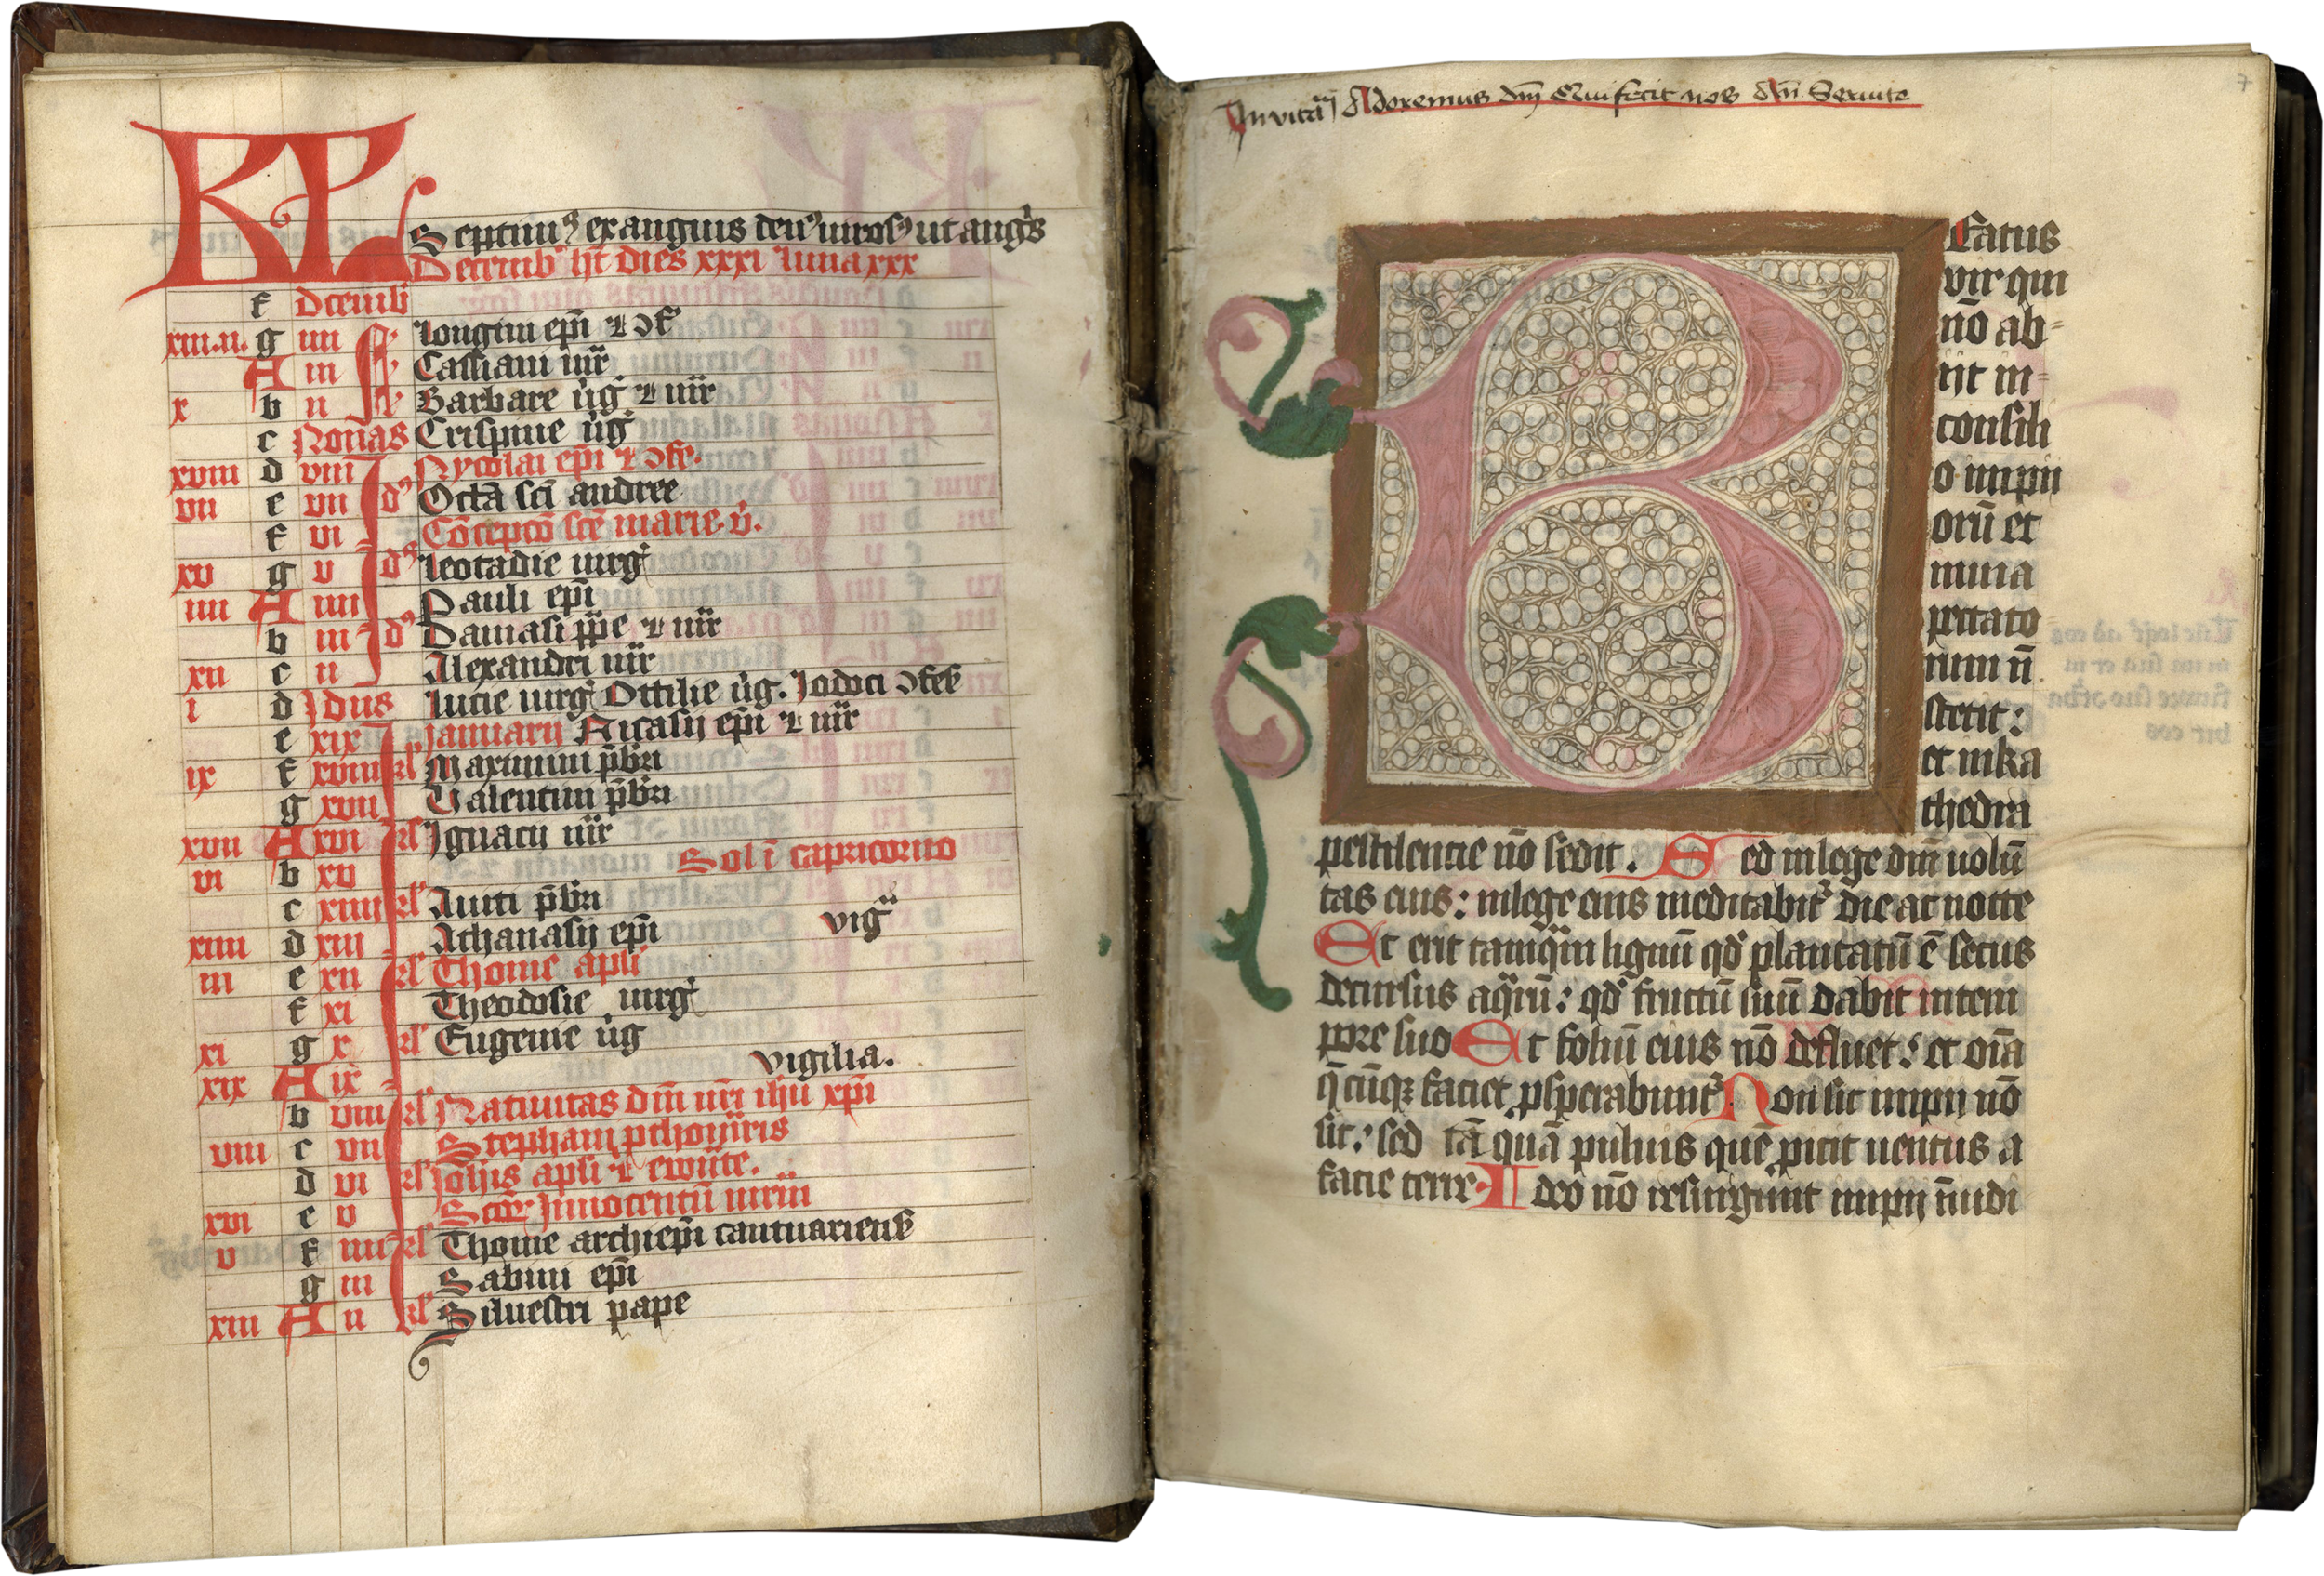 KL Septim⁹ exanguis den⁹ uiros⁹ ut angͥs
Decemb' ht dies xxxi luna xxx
f Dcembͥ
xiii.ii. g iiii Longini ep̄i ⁊ ɔf
A iii Cassiani mr̄
x b ii Barbare ūg ⁊ mr̄
c Nonas Crispine ūg
xviii d viii Nycolai ep̄i ⁊ ɔfe.
vii e vii d⁹ Octā sc̄i andree
f vi Cōcepcō sc̄e marie. ū.
xv g v d⁹ Leocadie uirg
iiii A iiii Pauli ep̄i
b iii d⁹ Damasi pp̄e ⁊ mr̄
xii c ii Alexandri mr̄
i d Idus Lucie uirg Ottilie ūg. Jodoci ɔfes
e xix Januarij Nicasij ep̄i ⁊ mr̄
ix f xviii kl' Maximini p̄bri
g xvii Valentini p̄bri
xvii A xvi kl' Ignacij mr̄
vi b xv Sol ī capricorno
c xiiii kl' Auiti p̄bri
xiiii d xiii Athanasij ep̄i vigͣ
iii e xii kl' Thome apl̄i
f xi Theodosie uirg
xi g x kl' Eugenie ūg
xix A ix vigilia.
b viii kl' Natiuitas dn̄i nr̄i ih̄u xp̄i
viii c vii Stephani pthom̄ris
d vi kl' Joh̄is apl̄i ⁊ ewāte.
xvi e v Sctōr Innocentū mr̄m
v f iiii kl' Thome archiep̄i cantuariens
g iii Sabini ep̄i
xiii A ii kl' Siluestri pape
Invitaͣ Adoremus dn̄m Qui fecit nos
7
Beatus
vir qui
nō ab=
ijt in=
consili
o impij
orū et
inuia
pccato
rum n̄
stetit:
et in ka
thedra
pestilencie nō sedit. Sed in lege dn̄i uolū
tas eius: in lege eius meditabit' die ac nocte
Et erit tamqͣm lignū qd' plantatū ē secus
decursus aqͣrū: qd' fructū suū dabit in tem
pore suo Et foliū eius nō defluet: et oīa
q̄cūq; faciet ꝓsperabunt' Non sic impij nō
sic: sed tā quā puluis quē ꝓicit uentus a
facie terre Ideo nō resurgunt impij ī iudi